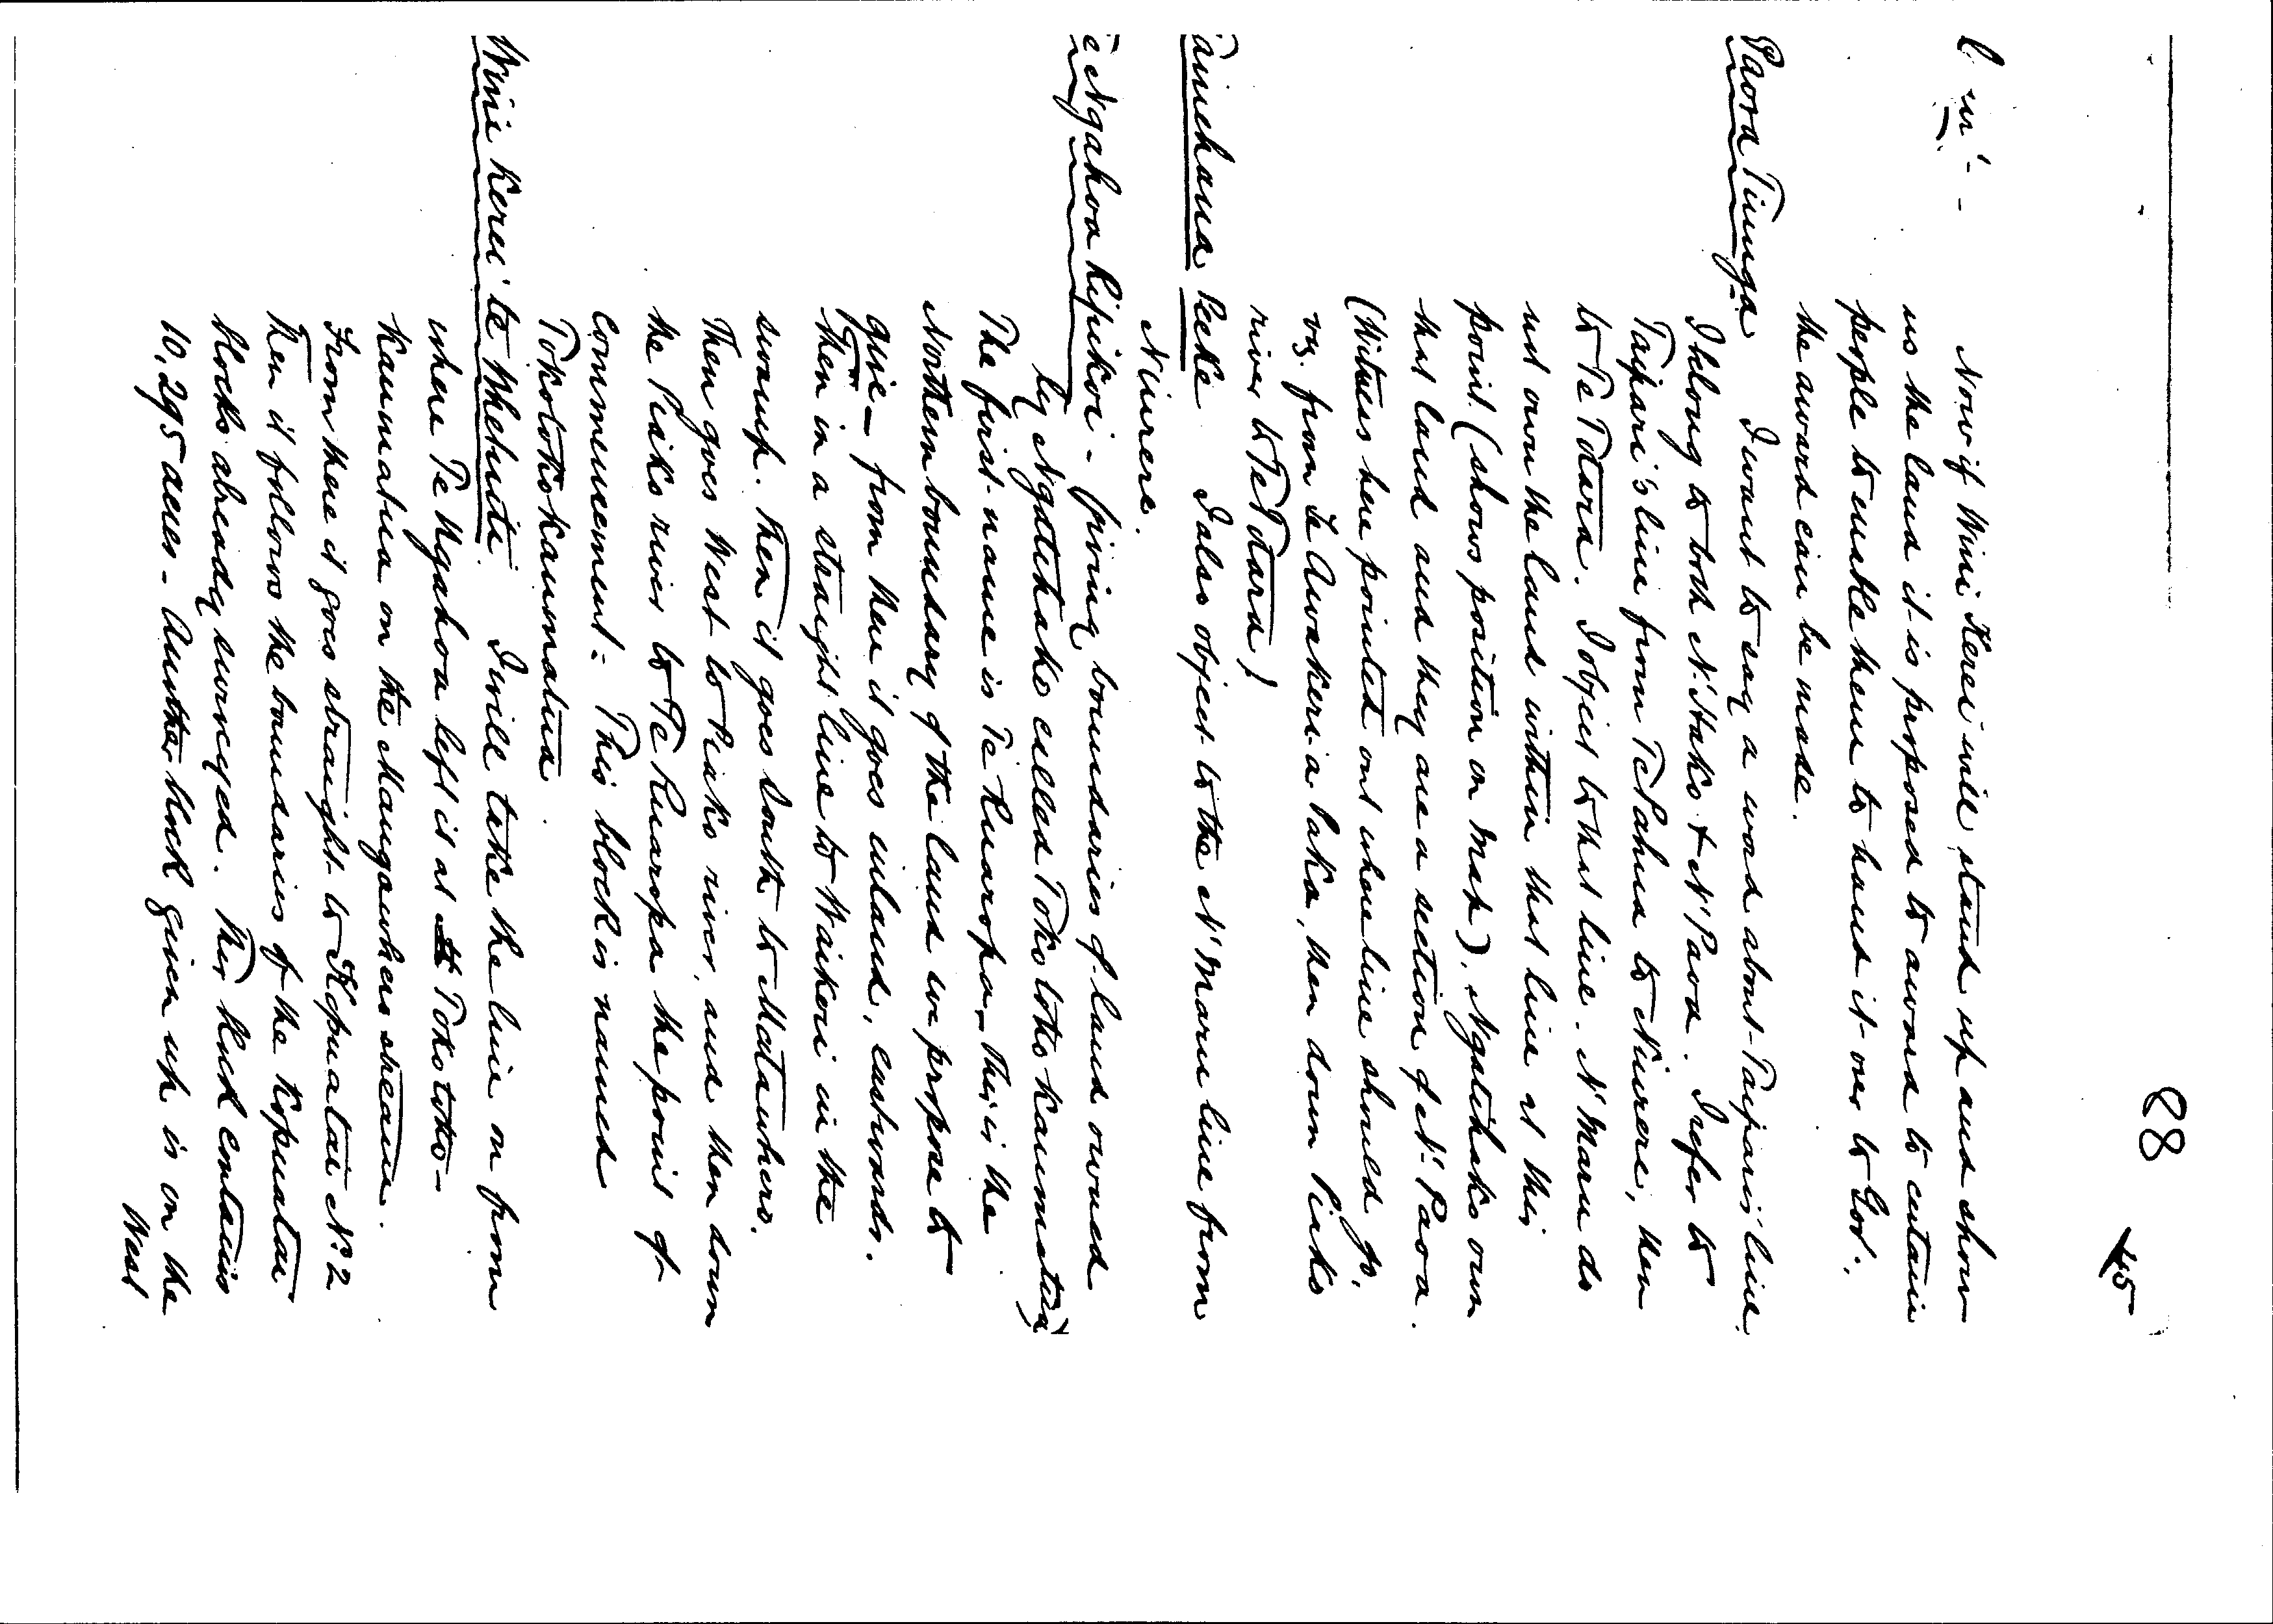 88
45
Now if Wini Kerei will stand up and show
us the land it is proposed to award to certain
people to enable them to hand it over to Gov.
the award can be made.
Paora Tiunga I want to say a word about Taipari's line.
I belong to both N'Hako & N'Paoa. I refer to
Taipari's line from Te Pahua to Niwere, then
to Te Totara. I object to that line. N'Maru do
not own the land within that line at this
point (shows position on Map). Ngatihako own
that land and they are a section of N'Paoa.
(Witness here pointed out where line should go,
viz. from Te Awakeri-a-Paka, then down Piako
river to Te Totara)
ainehana Peeke I also object to the N'Maru line from
Niwere.
e Ngahoa Kipikoi - giving boundaries of land owned
by Ngatihako called Tokotoko Kaumatua
The first name is Te Ruaropa. This is the
Northern boundary of the land we propose to
give — from there it goes inland, eastwards.
Then in a straight line to Waikori in the
swamp. Then it goes South to Matawhero.
Then goes West to Piako river, and then down
the Piako river to Te Ruaropa the point of
commencement. This block is named
Tokotoko Kaumatua.
Wini Kerei te Whetuiti I will take the line on from
where Te Ngahoa left it at Tokotoko-
Kaumatua on the Mangawhero stream.
From there it goes straight to Kopuatai No. 2
Then it follows the boundaries of the Kopuatai
blocks already surveyed. This block contains
10,295 acres - Another block given up is on the
West